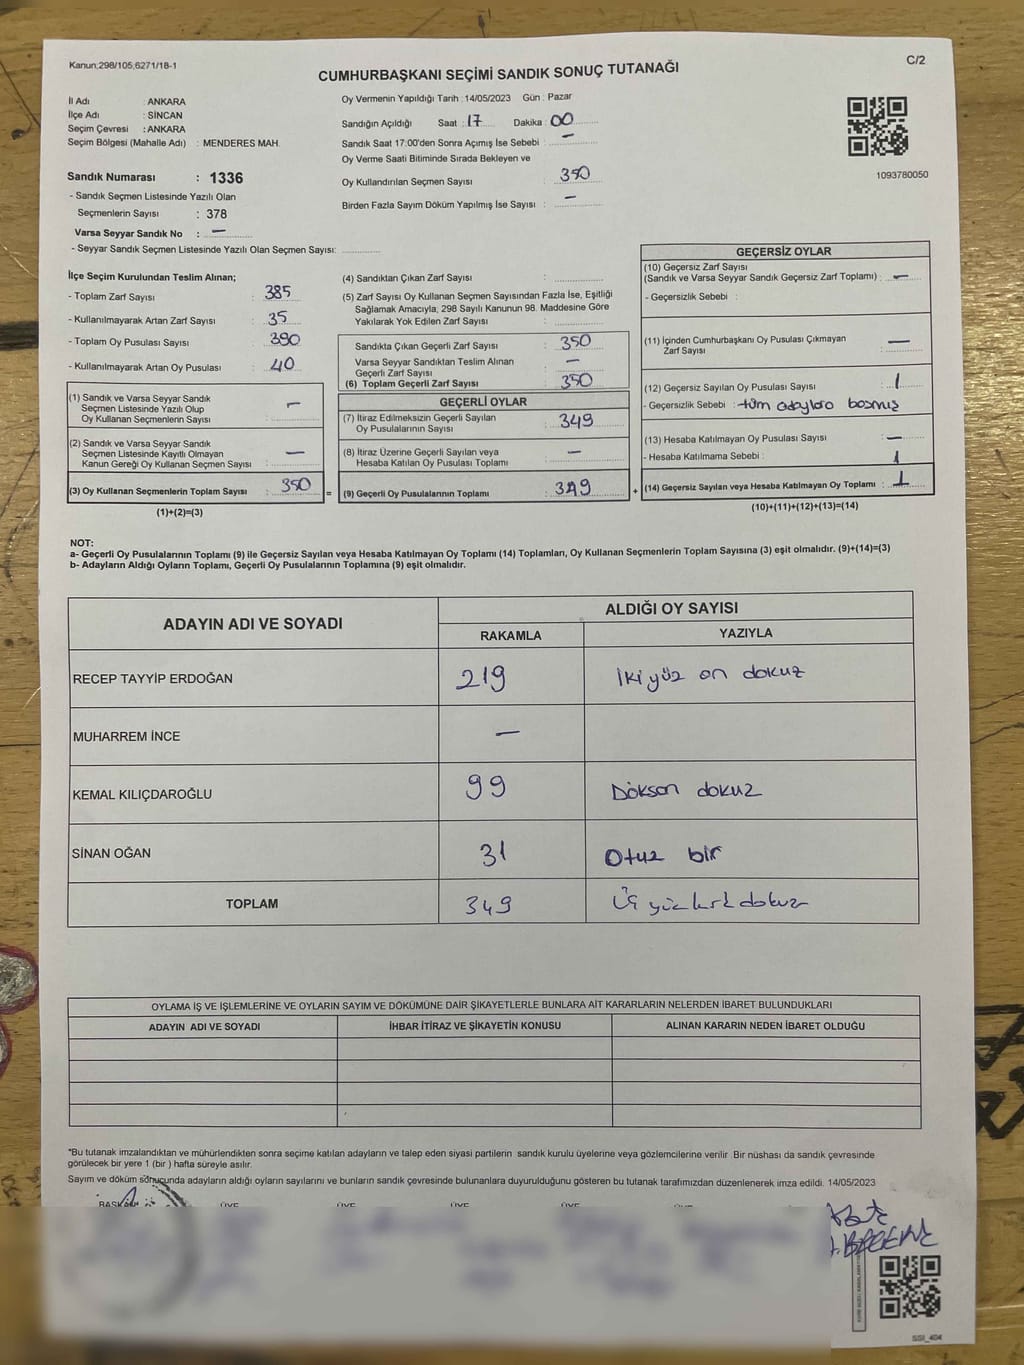 Kanun;298/105;6271/18-1
C/2
CUMHURBAŞKANI SEÇİMİ SANDIK SONUÇ TUTANAĞI
İl Adı : ANKARA
İlçe Adı : SİNCAN
Seçim Çevresi : ANKARA
Seçim Bölgesi (Mahalle Adı) : MENDERES MAH.
Sandık Numarası : 1336
- Sandık Seçmen Listesinde Yazılı Olan
Seçmenlerin Sayısı : 378
Varsa Seyyar Sandık No : —
- Seyyar Sandık Seçmen Listesinde Yazılı Olan Seçmen Sayısı:
Oy Vermenin Yapıldığı Tarih :14/05/2023 Gün : Pazar
Sandığın Açıldığı Saat : 17 Dakika : 00
Sandık Saat 17:00'den Sonra Açımış İse Sebebi : —
Oy Verme Saati Bitiminde Sırada Bekleyen ve
Oy Kullandırılan Seçmen Sayısı : 350
Birden Fazla Sayım Döküm Yapılmış İse Sayısı : —
1093780050
İlçe Seçim Kurulundan Teslim Alınan;
- Toplam Zarf Sayısı : 385
- Kullanılmayarak Artan Zarf Sayısı : 35
- Toplam Oy Pusulası Sayısı : 390
- Kullanılmayarak Artan Oy Pusulası : 40
(1) Sandık ve Varsa Seyyar Sandık
Seçmen Listesinde Yazılı Olup
Oy Kullanan Seçmenlerin Sayısı : —
(2) Sandık ve Varsa Seyyar Sandık
Seçmen Listesinde Kayıtlı Olmayan
Kanun Gereği Oy Kullanan Seçmen Sayısı : —
(3) Oy Kullanan Seçmenlerin Toplam Sayısı : 350
(1)+(2)=(3)
(4) Sandıktan Çıkan Zarf Sayısı :
(5) Zarf Sayısı Oy Kullanan Seçmen Sayısından Fazla İse, Eşitliği
Sağlamak Amacıyla, 298 Sayılı Kanunun 98. Maddesine Göre
Yakılarak Yok Edilen Zarf Sayısı :
Sandıkta Çıkan Geçerli Zarf Sayısı : 350
Varsa Seyyar Sandıktan Teslim Alınan
Geçerli Zarf Sayısı : —
(6) Toplam Geçerli Zarf Sayısı : 350
GEÇERLİ OYLAR
(7) İtiraz Edilmeksizin Geçerli Sayılan
Oy Pusulalarının Sayısı : 349
(8) İtiraz Üzerine Geçerli Sayılan veya
Hesaba Katılan Oy Pusulası Toplamı : —
= (9) Geçerli Oy Pusulalarının Toplamı : 349
GEÇERSİZ OYLAR
(10) Geçersiz Zarf Sayısı
(Sandık ve Varsa Seyyar Sandık Geçersiz Zarf Toplamı) : —
- Geçersizlik Sebebi :
(11) İçinden Cumhurbaşkanı Oy Pusulası Çıkmayan
Zarf Sayısı : —
(12) Geçersiz Sayılan Oy Pusulası Sayısı : 1
- Geçersizlik Sebebi : tüm adaylara basmış
(13) Hesaba Katılmayan Oy Pusulası Sayısı : —
- Hesaba Katılmama Sebebi : 1
+ (14) Geçersiz Sayılan veya Hesaba Katılmayan Oy Toplamı : 1
(10)+(11)+(12)+(13)=(14)
NOT:
a- Geçerli Oy Pusulalarının Toplamı (9) ile Geçersiz Sayılan veya Hesaba Katılmayan Oy Toplamı (14) Toplamları, Oy Kullanan Seçmenlerin Toplam Sayısına (3) eşit olmalıdır. (9)+(14)=(3)
b- Adayların Aldığı Oyların Toplamı, Geçerli Oy Pusulalarının Toplamına (9) eşit olmalıdır.
ADAYIN ADI VE SOYADI
ALDIĞI OY SAYISI
RAKAMLA YAZIYLA
RECEP TAYYİP ERDOĞAN 219 İki yüz on dokuz
MUHARREM İNCE —
KEMAL KILIÇDAROĞLU 99 Doksan dokuz
SİNAN OĞAN 31 Otuz bir
TOPLAM 349 Üç yüz kırk dokuz
OYLAMA İŞ VE İŞLEMLERİNE VE OYLARIN SAYIM VE DÖKÜMÜNE DAİR ŞİKAYETLERLE BUNLARA AİT KARARLARIN NELERDEN İBARET BULUNDUKLARI
ADAYIN ADI VE SOYADI İHBAR İTİRAZ VE ŞİKAYETİN KONUSU ALINAN KARARIN NEDEN İBARET OLDUĞU
*Bu tutanak imzalandıktan ve mühürlendikten sonra seçime katılan adayların ve talep eden siyasi partilerin sandık kurulu üyelerine veya gözlemcilerine verilir. Bir nüshası da sandık çevresinde
görülecek bir yere 1 (bir) hafta süreyle asılır.
Sayım ve döküm sonucunda adayların aldığı oyların sayılarını ve bunların sandık çevresinde bulunanlara duyurulduğunu gösteren bu tutanak tarafımızdan düzenlenerek imza edildi. 14/05/2023
BAŞKAN ÜYE ÜYE ÜYE ÜYE ÜYE
SSI_404